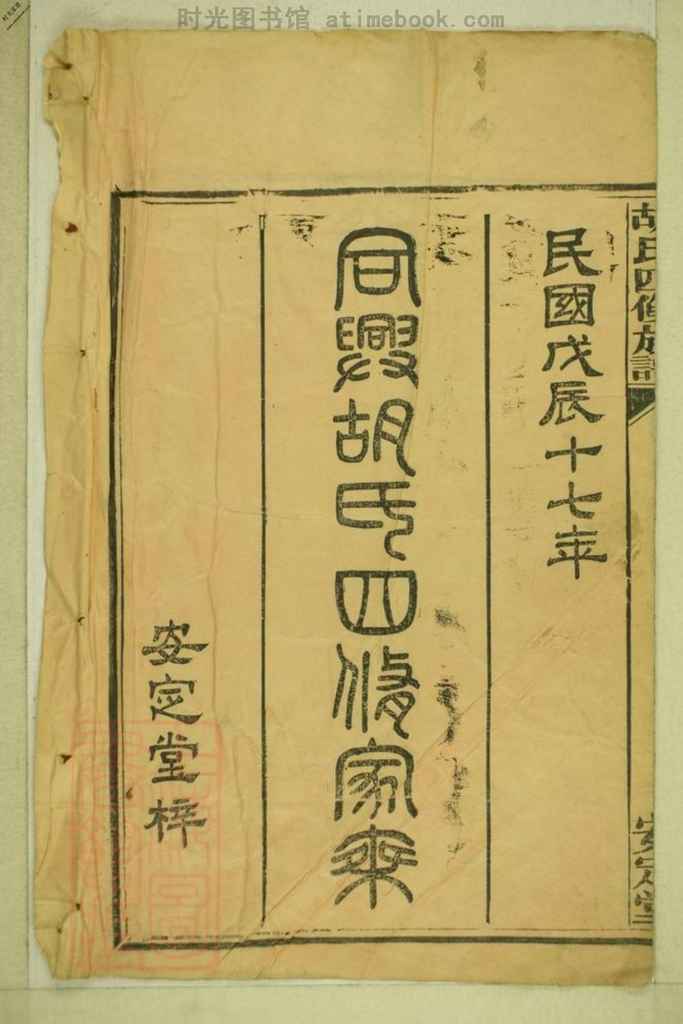 时光图书馆 atimebook.com
胡氏四修族譜
安定堂
民國戊辰十七年
同興胡氏四修家乘
安定堂梓